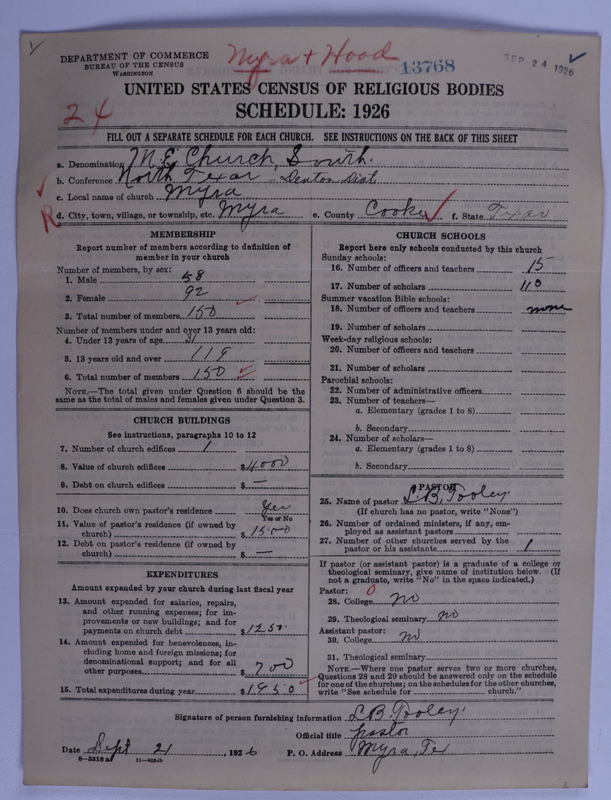 DEPARTMENT OF COMMERCE
BUREAU OF THE CENSUS
WASHINGTON
Myra + Hood
13768
SEP 24 1926
UNITED STATES CENSUS OF RELIGIOUS BODIES
24
SCHEDULE: 1926
FILL OUT A SEPARATE SCHEDULE FOR EACH CHURCH. SEE INSTRUCTIONS ON THE BACK OF THIS SHEET
a. Denomination M.E. Church, South.
b. Conference North Texas - Denton Dist
c. Local name of church Myra
R
d. City, town, village, or township, etc. Myra e. County Cooke f. State Texas
MEMBERSHIP
Report number of members according to definition of
member in your church
Number of members, by sex:
1. Male 58
2. Female 92
3. Total number of members 150
Number of members under and over 13 years old:
4. Under 13 years of age 31
5. 13 years old and over 119
6. Total number of members 150
NOTE.—The total given under Question 6 should be the
same as the total of males and females given under Question 3.
CHURCH BUILDINGS
See instructions, paragraphs 10 to 12
7. Number of church edifices 1
8. Value of church edifices $4000
9. Debt on church edifices $ —
10. Does church own pastor's residence Yes
Yes or No
11. Value of pastor's residence (if owned by
church) $ 1500
12. Debt on pastor's residence (if owned by
church) $ —
EXPENDITURES
Amount expended by your church during last fiscal year
13. Amount expended for salaries, repairs,
and other running expenses; for im-
provements or new buildings; and for
payments on church debt $1250
14. Amount expended for benevolences, in-
cluding home and foreign missions; for
denominational support; and for all
other purposes $ 700
15. Total expenditures during year $1950
CHURCH SCHOOLS
Report here only schools conducted by this church
Sunday schools:
16. Number of officers and teachers 15
17. Number of scholars 110
Summer vacation Bible schools:
18. Number of officers and teachers none
19. Number of scholars
Week-day religious schools:
20. Number of officers and teachers
21. Number of scholars
Parochial schools:
22. Number of administrative officers
23. Number of teachers—
a. Elementary (grades 1 to 8)
b. Secondary
24. Number of scholars—
a. Elementary (grades 1 to 8)
b. Secondary
PASTOR
25. Name of pastor L.B. Tooley
(If church has no pastor, write "None")
26. Number of ordained ministers, if any, em-
ployed as assistant pastors
27. Number of other churches served by the
pastor or his assistants 1
If pastor (or assistant pastor) is a graduate of a college or
theological seminary, give name of institution below. (If
not a graduate, write "No" in the space indicated.)
Pastor: 0
28. College No
29. Theological seminary No
Assistant pastor:
30. College No
31. Theological seminary
NOTE.—Where one pastor serves two or more churches,
Questions 28 and 29 should be answered only on the schedule
for one of the churches; on the schedules for the other churches,
write "See schedule for church."
Signature of person furnishing information L.B. Tooley.
Official title pastor
Date Sept 21, 1926 P. O. Address Myra, Tex
8—5518a 11—9024b